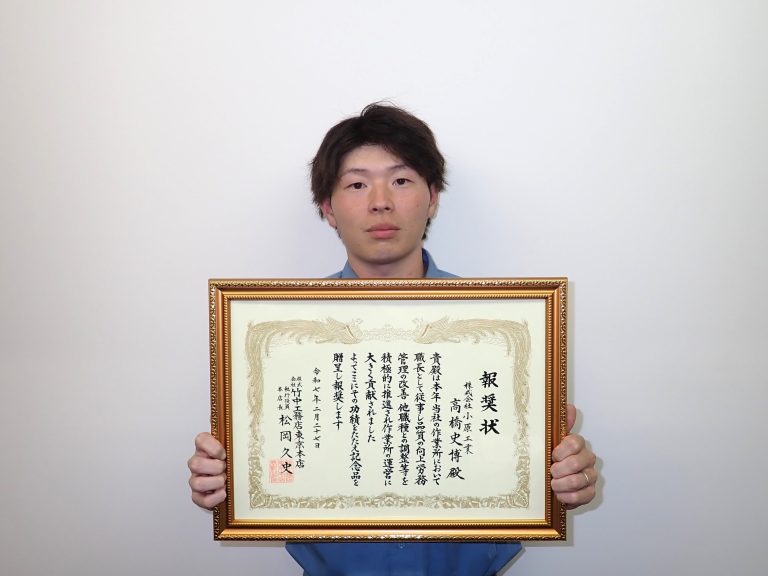 報奨状
株式会社小原工業
高橋史博殿
貴殿は本年当社の作業所において
職長として従事し品質の向上労務
管理の改善他職種との調整等を
積極的に推進され作業所の運営に
大きく貢献されました
よってここにその功績をたたえ記念品を
贈呈し報奨します
令和七年二月二十七日
株式会社竹中工務店東京本店
執行役員本店長
松岡久史